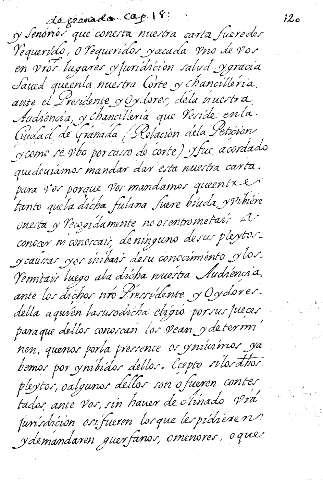 de granada. Cap. 18:
120
y Señorios que conesta nuestra carta fueredes
Requerido, o Requeridos y acada Uno de vos
en vros lugares y Juridicion salud y gracia
saved que en la nuestra Corte y Chancilleria
ante el Presidente y Oydores, de la nuestra
Audiencia, y Chancilleria que Reside en la
Ciudad de Granada (Relacion de la Peticion
y como se vbo por caso de corte) y fue acordado
que deviamos mandar dar esta nuestra carta
para vos porque vos mandamos que entre
tanto que la dicha fulana fuere biuda, y vibiere
onesta y Recogidamente no os entrometais a
conocer ni conoscais, de ninguno de sus pleytos
y causas y os inibais de su conocimiento y los
Remitais luego ala dicha nuestra Audiencia,
ante los dichos nro Pressidente y Oydores
della aquien la susodicha eligio por sus jueces
para que dellos conoscan los vean, y determi
nen, que nos por la pressente os ynivimos ya
bemos por ynibidos dellos. Ecepto si los dhos
pleytos, o algunos dellos son o fueren contes
tados, ante vos, sin haver declinado vra
jurisdicion o si fueren los que les pidieren
y demandaren guerfanos, o menores, o que